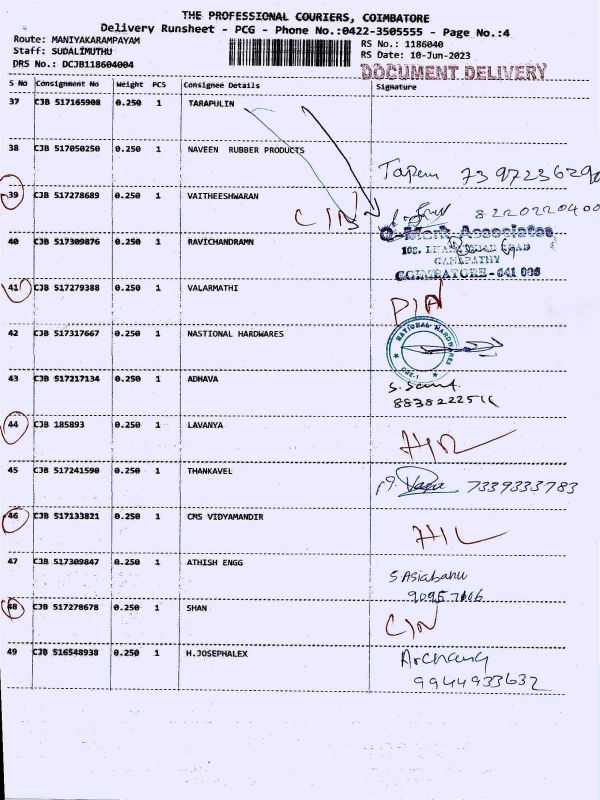 THE PROFESSIONAL COURIERS, COIMBATORE
Delivery Runsheet - PCG - Phone No.:0422-3505555 - Page No.:4
Route: MANIYAKARAMPAYAM
RS No.: 1186040
Staff: SUDALIMUTHU
RS Date: 10-Jun-2023
DRS No.: DCJB118604004
DOCUMENT DELIVERY
S No Consignment No Weight PCS Consignee Details Signature
37 CJB 517165908 0.250 1 TARAPULIN
38 CJB 517050250 0.250 1 NAVEEN RUBBER PRODUCTS
39 CJB 517278689 0.250 1 VAITHEESHWARAN CIN 8220220400
Associates
40 CJB 517309876 0.250 1 RAVICHANDRAMN
GANAPATHY
COIMBATORE - 641 006
41 CJB 517279388 0.250 1 VALARMATHI
42 CJB 517317667 0.250 1 NASTIONAL HARDWARES
NATIONAL HARDWARES
CBE-1
43 CJB 517217134 0.250 1 ADHAVA
44 CJB 185893 0.250 1 LAVANYA
45 CJB 517241590 0.250 1 THANKAVEL 7339333783
46 CJB 517133821 0.250 1 CMS VIDYAMANDIR
47 CJB 517309847 0.250 1 ATHISH ENGG
S Asiabanu
48 CJB 517278678 0.250 1 SHAN CIN
49 CJB 516548938 0.250 1 H.JOSEPHALEX Archana
9944933632